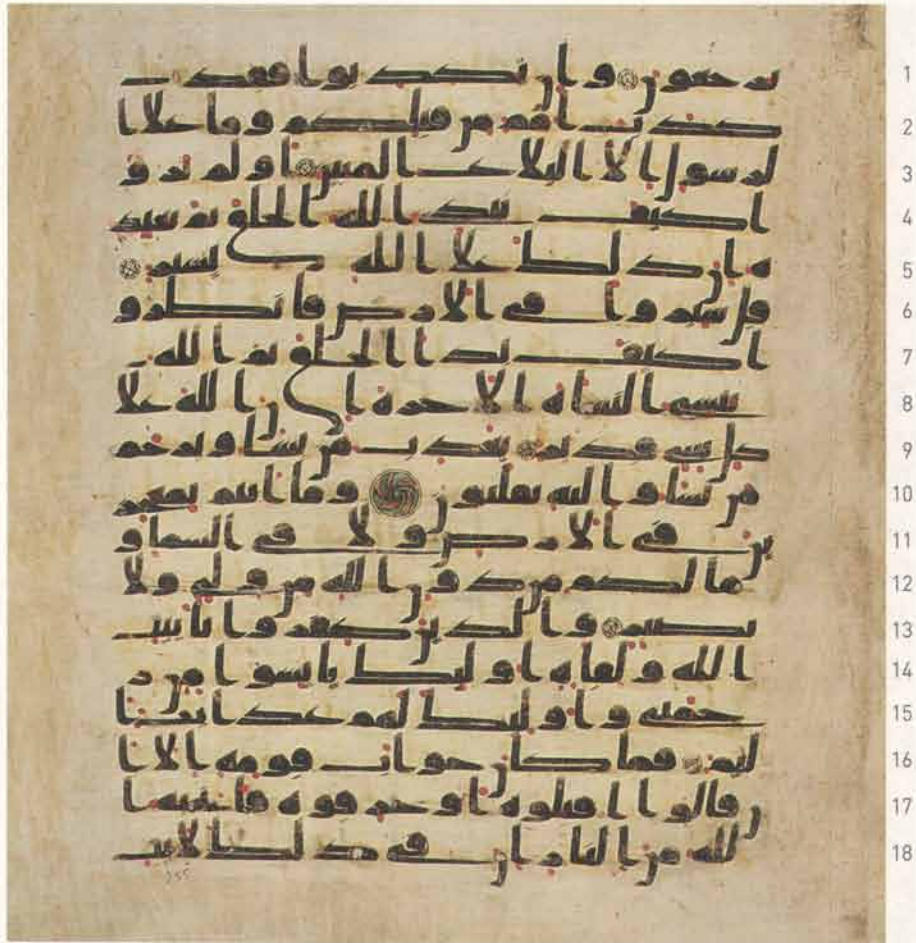 1 ترجعون وان تكذبوا فقد
2 كذب امم من قبلكم وما علا ا
3 لرسول الا البلاغ المبين اولم يرو
4 ا كيف يبدى الله الخلق ثم يعيد
5 ه ان ذلك علا الله يسير
6 قل سيروا في الارض فانظرو
7 ا كيف بدا الخلق ثم الله
8 ينشى النشاة الاخرة ان الله علا
9 كل شي قدير يعذب من يشا ويرحم
10 من يشا واليه تقلبون وما انتم بمعجز
11 ين في الارض ولا في السما و
12 ما لكم من دون الله من ولي ولا
13 نصير والذين كفروا بايت
14 الله ولقايه اوليك يايسوا من ر
15 حمتي واوليك لهم عذاب ا
16 ليم فما كان جواب قومه الا ا
17 ن قالوا اقتلوه او حرقوه فانجيه ا
18 لله من النار ان في ذلك لايت